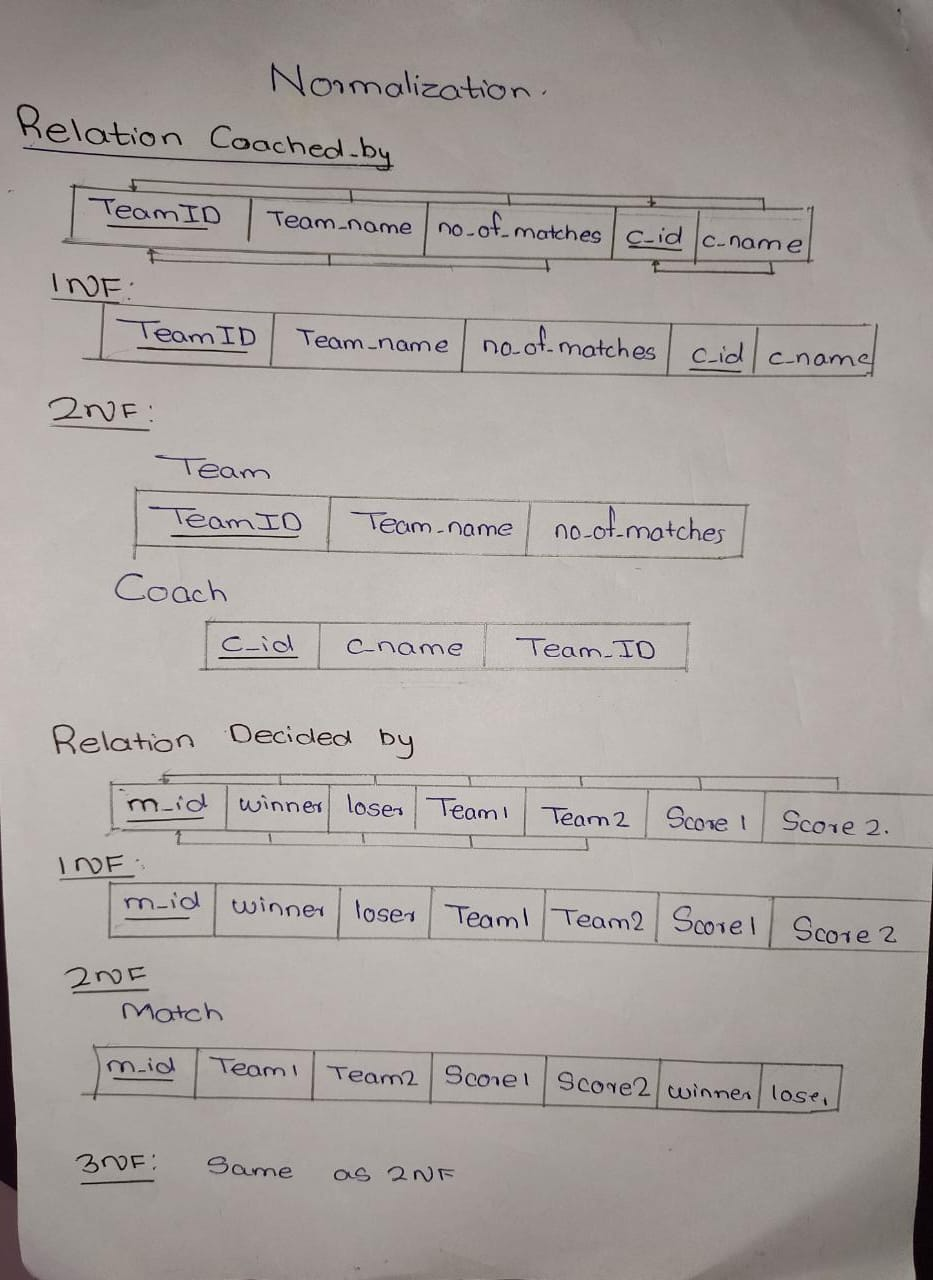 Normalization.
Relation Coached_by
TeamID Team_name no_of_matches c_id c_name
1NF:
TeamID Team_name no_of_matches c_id c_name
2NF:
Team
TeamID Team_name no_of_matches
Coach
c_id c_name Team_ID
Relation Decided by
m_id winner loser Team1 Team2 Score1 Score2.
1NF:
m_id winner loser Team1 Team2 Score1 Score2
2NF
Match
m_id Team1 Team2 Score1 Score2 winner loser
3NF: Same as 2NF